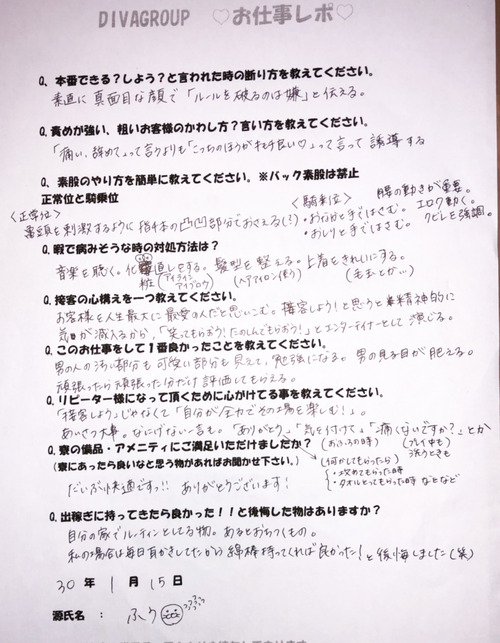 DIVAGROUP ♡お仕事レポ♡
Q、本番できる？しよう？と言われた時の断り方を教えてください。
素直に真面目な顔で「ルールを破るのは嫌」と伝える。
Q、責めが強い、粗いお客様のかわし方？言い方を教えてください。
「痛い、辞めて」って言うよりも「こっちのほうが気持ち良い♡」って言って誘導する
Q、素股のやり方を簡単に教えてください。※バック素股は禁止
正常位と騎乗位
〈正常位〉
裏筋を刺激するように指4本の凸凹部分でおさえる(!?)
〈騎乗位〉
・おなかと手ではさむ。
・おしりと手ではさむ。
腰の動きが重要。
エロク動く。
クビレを強調。
Q、暇で病みそうな時の対処方法は？
音楽を聴く。化粧直しをする。髪型を整える。上着をきれいにする。
(アイライン アイブロウ) (ヘアアイロン使う) (毛玉とか…)
Q、接客の心構えを一つ教えてください。
お客様を人生最大に最愛の人だと思いこむ。接客しよう！と思うと精神的に
気が滅入るから、「笑ってもらおう！たのしんでもらおう！」とエンターテイナーとして演じる。
Q、このお仕事をして1番良かったことを教えてください。
男の人の汚い部分も可愛い部分も見えて、勉強になる。男の見る目が肥える。
頑張ったら頑張った分だけ評価してもらえる。
Q、リピーター様になって頂くために心がけてる事を教えてください。
「接客しよう」じゃなくて「自分が全力でその場を楽しむ！」。
あいさつ大事。なにげない一言も。「ありがとう」「気を付けて」「痛くないですか？」とか
(おふろの時) (プレイ中も 洗うときも)
Q、寮の備品・アメニティにご満足いただけましたか？
(寮にあったら良いなと思う物があればお聞かせ下さい。)
(何かしてもらったら)
・攻めてもらった時
・タオルとってもらった時 などなど
だいぶ快適ですっ!! ありがとうございます！
Q、出稼ぎに持ってきたら良かった！！と後悔した物はありますか？
自分の家でルーティンとしてる物。あるとおちつくもの。
私の場合は毎日耳かきしてたから綿棒持ってくれば良かった！と後悔しました(笑)
30 年 1 月 15 日
源氏名 ： ふう